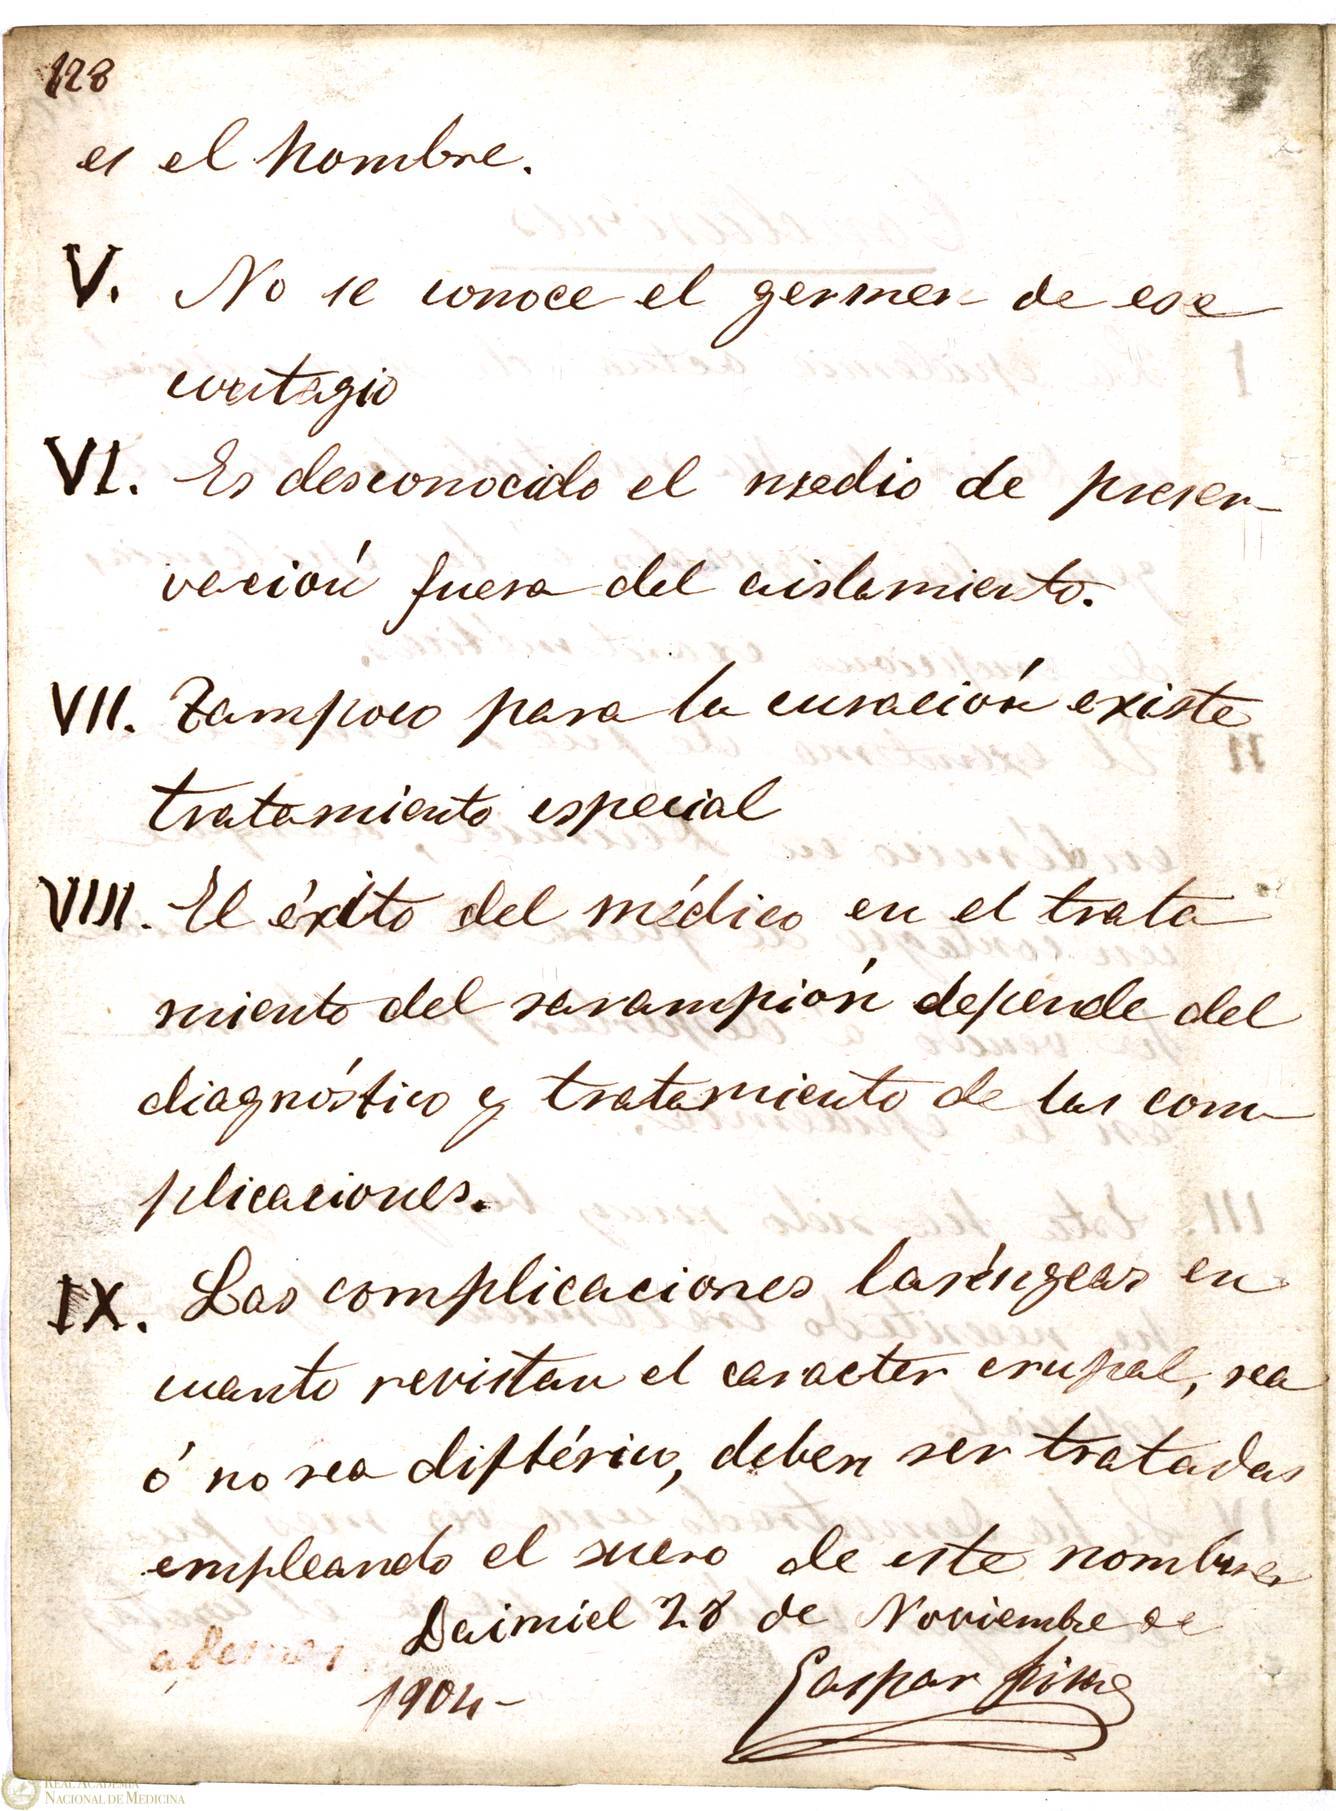 128
es el hombre.
V. No se conoce el germen de ese
contagio
VI. Es desconocido el medio de preser-
vación fuera del aislamiento.
VII. Tampoco para la curación existe
tratamiento especial
VIII. El éxito del médico en el trata
miento del sarampión depende del
diagnóstico y tratamiento de las com-
plicaciones.
IX. Las complicaciones laríngeas en
cuanto revistan el caracter crupal, sea
ó no sea diftérico, deben ser tratadas
empleando el suero de este nombre
ademas. Daimiel 28 de Noviembre de
1904-
Gaspar
REAL ACADEMIA
NACIONAL DE MEDICINA